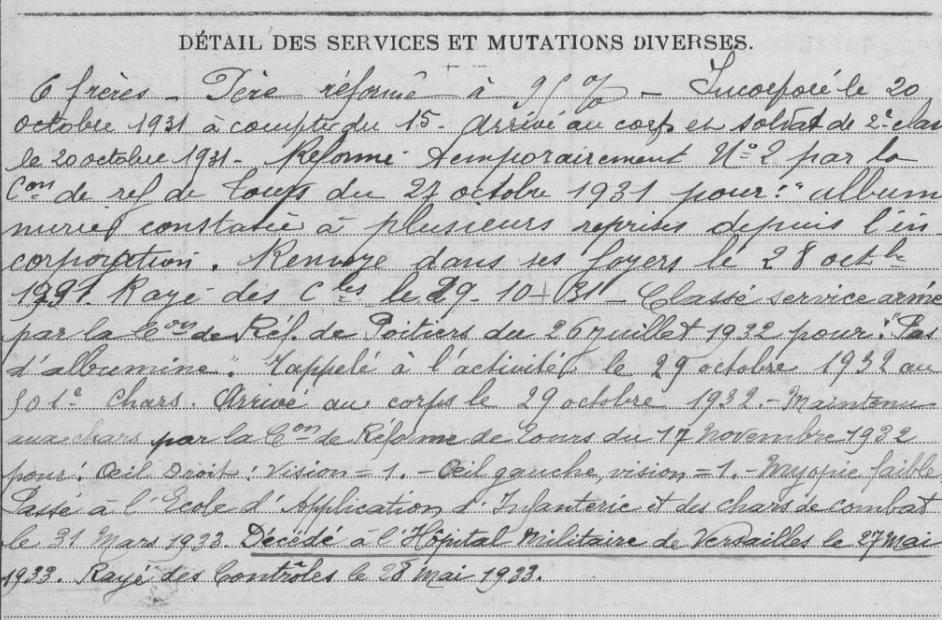 DÉTAIL DES SERVICES ET MUTATIONS DIVERSES.
6 frères - Père réformé à 95 % - Incorporé le 20
octobre 1931 à compter du 15 - arrivé au corps et soldat de 2e clas
le 20 octobre 1931 - Réformé temporairement N° 2 par la
Con de réf de Tours du 27 octobre 1931 pour : "album
nurie" constatée à plusieurs reprises depuis l'in
corporation. Renvoyé dans ses foyers le 28 octbre
1931. Rayé des Cles le 29-10-31 - Classé service armé
par la Con de Réf. de Poitiers du 26 juillet 1932 pour : "Pas
d'albumine". Rappelé à l'activité le 29 octobre 1932 au
501e Chars. Arrivé au corps le 29 octobre 1932. - Maintenu
aux chars par la Con de Réforme de Tours du 17 Novembre 1932
pour : Œil Droit : Vision = 1. - Œil gauche, vision = 1. - Myopie faible
Passé à l'Ecole d'Application d'Infanterie et des chars de combat
le 31 Mars 1933. Décédé à l'Hôpital Militaire de Versailles le 27 mai
1933. Rayé des Contrôles le 28 Mai 1933.